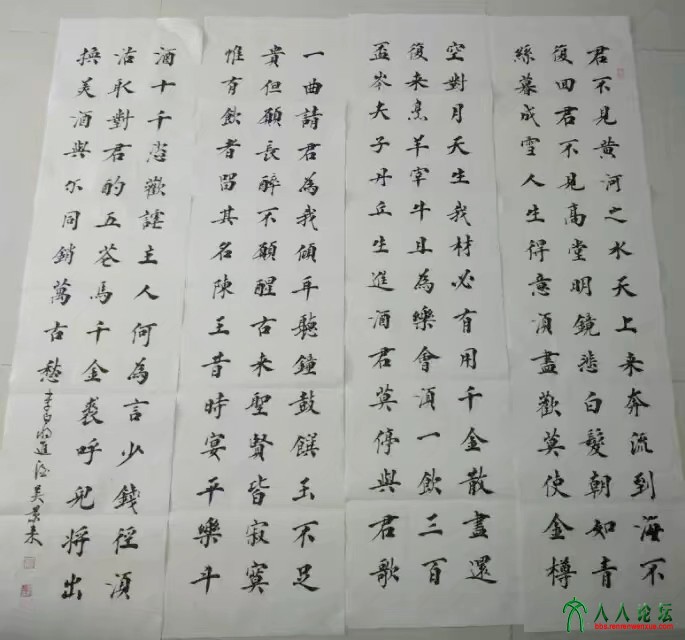 君不見黄河之水天上来奔流到海不
復回君不見高堂明鏡悲白髮朝如青
絲暮成雪人生得意須盡歡莫使金樽
空對月天生我材必有用千金散盡還
復来烹羊宰牛且為樂會須一飲三百
盃岑夫子丹丘生進酒君莫停與君歌
一曲請君為我傾耳聽鐘鼓饌玉不足
貴但願長醉不願醒古来聖賢皆寂寞
惟有飲者留其名陳王昔時宴平樂斗
酒十千恣歡謔主人何為言少錢徑須
沽取對君酌五花馬千金裘呼兒将出
換美酒與尓同銷萬古愁
李白将進酒吴景来
人人论坛